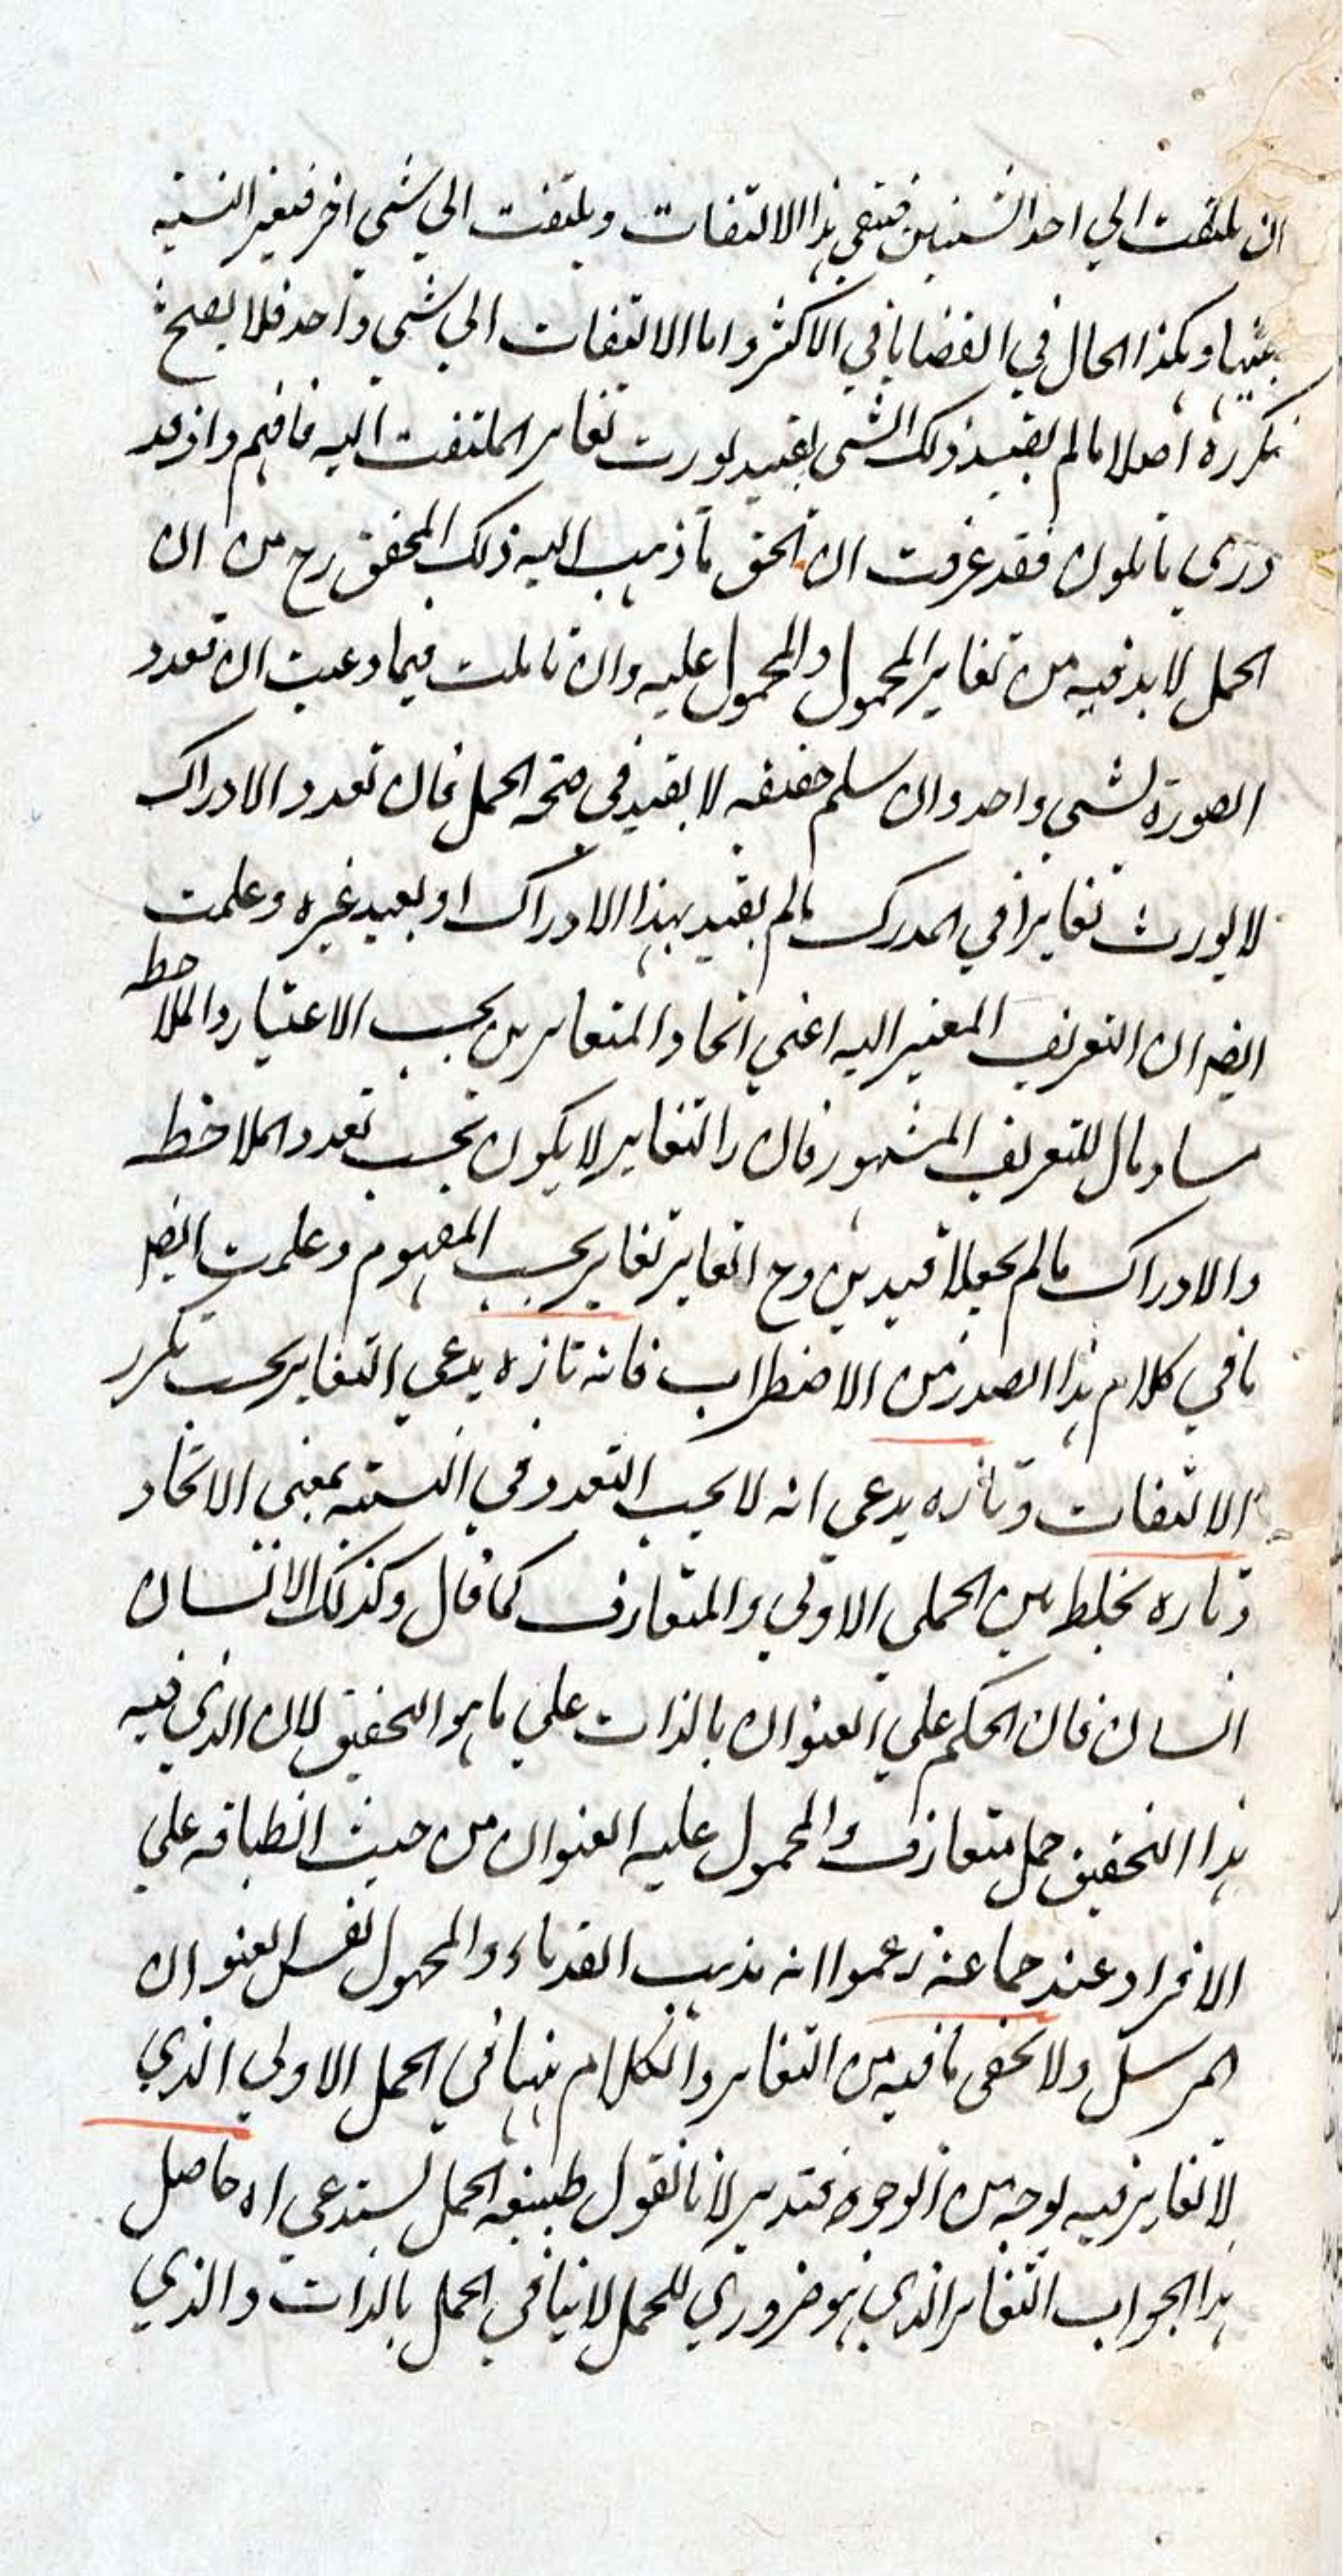 ان يلتفت الي احد الشيئين فينتفي هذا الالتفات ويلتفت الي شي اخر فيعبر النسبة
بينهما وهكذا الحال في القضايا في الاكثر واما الالتفات الي شي واحد فلا يصح
تكرره اصلا ما لم يقيد ذلك الشي بقيد يورث تغاير الملتفت اليه فافهم واذ قد
دري ما تلون فقد عرفت ان الحق ما ذهب اليه ذلك المحقق رح من ان
الحمل لابد فيه من تغاير المحمول والمحمول عليه وان تاملت فيما وعيت ان تعدد
الصورة لشي واحد وان سلم حقيقه لا يفيد في صحة الحمل فان تعدد الادراك
لا يورث تغايرا في المدرك ما لم يقيد بهذا الادراك او بقيد غيره وعلمت
ايضا ان التعريف المغير اليه اعني اتحاد المتغايرين بحسب الاعتبار والملاحظه
مساو مال للتعريف المشهور فان التغاير لا يكون بحسب تعدد الملاحظه
والادراك ما لم يجعلا قيدين وح التغاير تغاير بحسب المفهوم وعلمت ايضا
ما في كلام هذا الصدر من الاضطراب فانه تارة يدعي التغاير بحسب تكرر
الالتفات وتاره يدعي انه لا يجب التعدد في النسبة بمعني الاتحاد
وتاره يخلط بين الحملي الاولي والمتعارف كما قال وكذلك الانسان
انسان فان الحكم علي العنوان بالذات علي ما هو التحقيق لان الذي فيه
هذا التحقيق حمل متعارف والمحمول عليه العنوان من حيث انطباقه علي
الافراد عند جماعة زعموا انه مذهب القدماء والمحمول نفس العنوان
المرسل ولا يخفي ما فيه من التغاير والكلام ههنا في الحمل الاولي الذي
لا تغاير فيه بوجه من الوجوه فتدبر لانا نقول طبيعة الحمل يستدعي اه حاصل
هذا الجواب التغاير الذي هو ضروري للحمل لا ينافي الحمل بالذات والذي